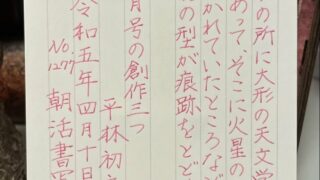 の所に大形の天文学
あって、そこに火星の
かれていたところなど
の型が痕跡をとど
月号の創作三つ
平林初
令和五年四月十日
No 1277 朝活書写